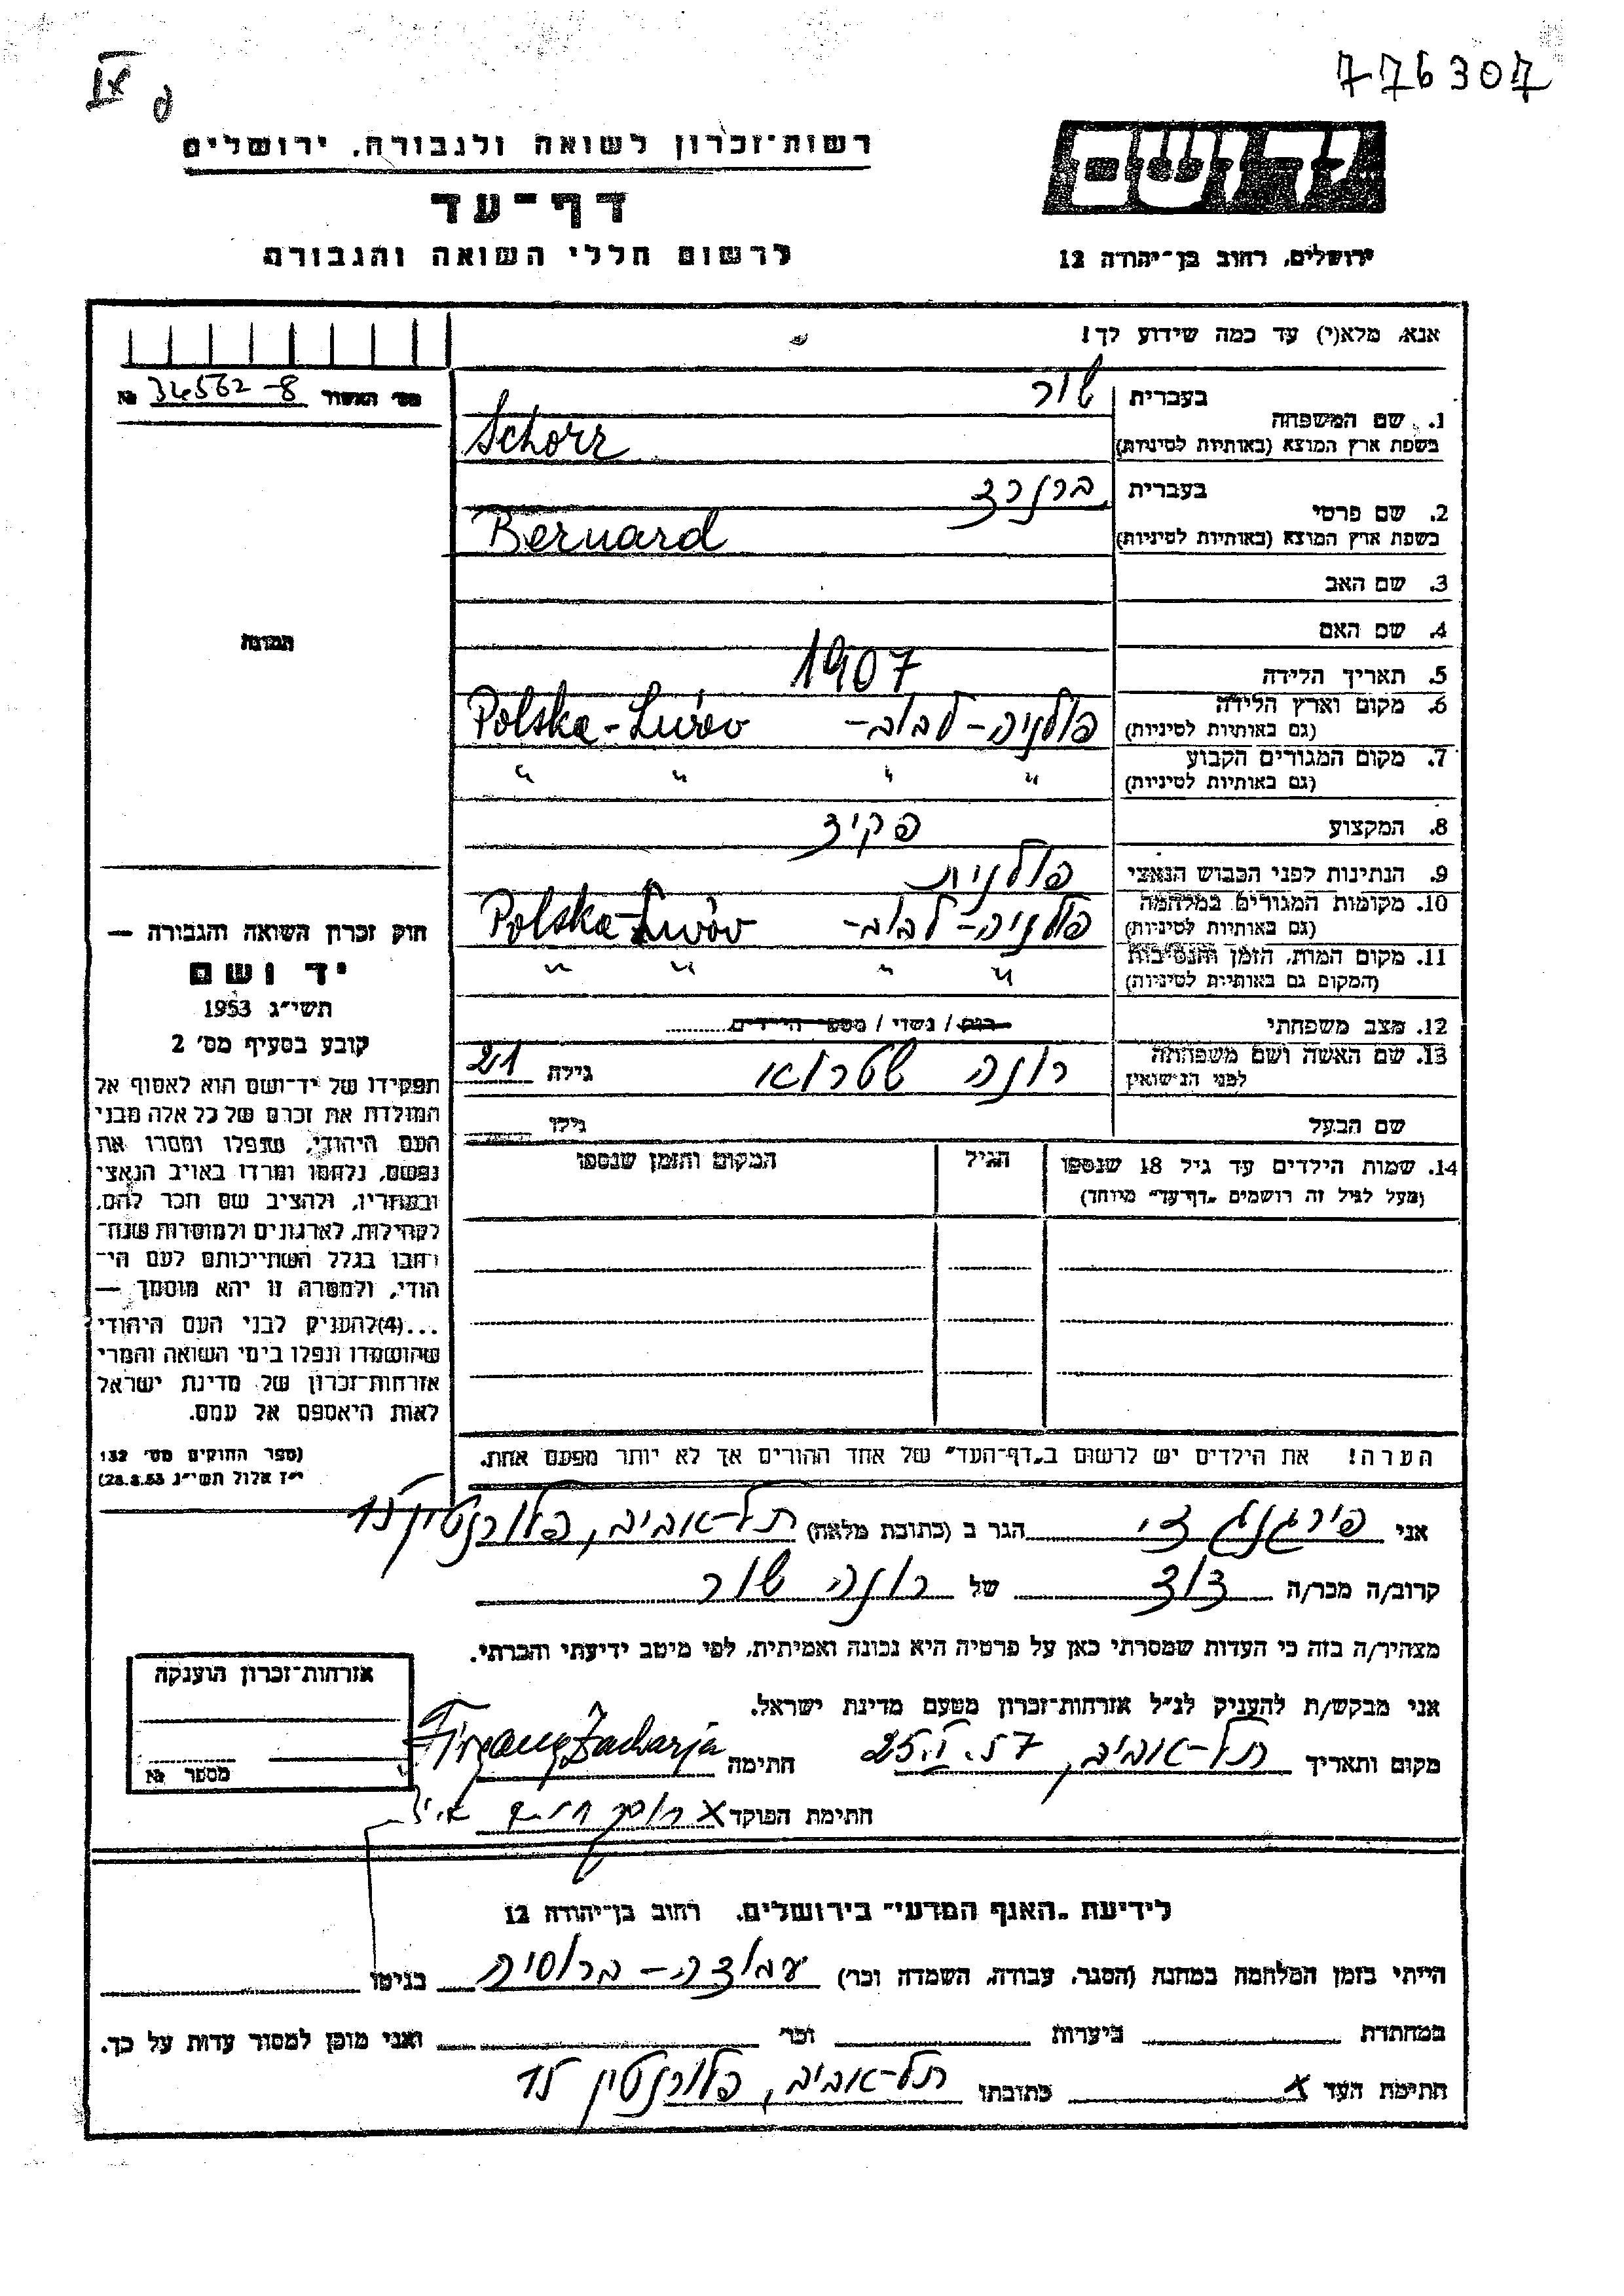 776307
רשות־זכרון לשואה ולגבורה, ירושלים
דף־עד
לרשום חללי השואה והגבורה
יד ושם
ירושלים, רחוב בן־יהודה 12
אנא, מלא(י) עד כמה שידוע לך!
מס׳ האשור 34562-8 №
1. שם המשפחה בעברית שור
בשפת ארץ המוצא (באותיות לטיניות) Schorr
2. שם פרטי בעברית ברנרד
בשפת ארץ המוצא (באותיות לטיניות) Bernard
3. שם האב
4. שם האם
5. תאריך הלידה 1907
6. מקום וארץ הלידה (גם באותיות לטיניות) פולניה - לבוב - Polska - Lwów
7. מקום המגורים הקבוע (גם באותיות לטיניות) " " " "
8. המקצוע פקיד
9. הנתינות לפני הכבוש הנאצי פולנית
10. מקומות המגורים במלחמה (גם באותיות לטיניות) פולניה - לבוב - Polska - Lwów
11. מקום המות, הזמן והנסיבות (המקום גם באותיות לטיניות) " " " "
12. מצב משפחתי רווק / נשוי / מספר הילדים
13. שם האשה ושם משפחתה לפני הנישואין רוזה גילה 21
שם הבעל גילו
14. שמות הילדים עד גיל 18 שנספו הגיל המקום והזמן שנספו
(מעל לגיל זה רושמים „דף־עד״ מיוחד)
הערה! את הילדים יש לרשום ב„דף־העד״ של אחד ההורים אך לא יותר מפעם אחת.
תמונה
חוק זכרון השואה והגבורה —
יד ושם
תשי״ג 1953
קובע בסעיף מס׳ 2
תפקידו של יד־ושם הוא לאסוף אל
המולדת את זכרם של כל אלה מבני
העם היהודי, שנפלו ומסרו את
נפשם, נלחמו ומרדו באויב הנאצי
ובעוזריו, ולהציב שם וזכר להם,
לקהילות, לארגונים ולמוסדות שנח־
רבו בגלל השתייכותם לעם הי־
הודי, ולמטרה זו יהא מוסמך —
...(4) להעניק לבני העם היהודי
שהושמדו ונפלו בימי השואה והמרי
אזרחות־זכרון של מדינת ישראל
לאות היאספם אל עמם.
(ספר החוקים מס׳ 132
י״ז אלול תשי״ג 28.8.53)
אני פירגנג הגר ב (כתובת מלאה) תל-אביב, פלורנטין
קרוב/ה מכר/ה דוד של רוזה שור
מצהיר/ה בזה כי העדות שמסרתי כאן על פרטיה היא נכונה ואמיתית, לפי מיטב ידיעתי והכרתי.
אני מבקש/ת להעניק לנ״ל אזרחות־זכרון מטעם מדינת ישראל.
מקום ותאריך תל-אביב, 57 חתימה Firgang Zacharja
חתימת הפוקד
אזרחות־זכרון הוענקה
מספר №
לידיעת „האגף המדעי״ בירושלים, רחוב בן־יהודה 12
הייתי בזמן המלחמה במחנה (הסגר, עבודה, השמדה וכו׳) עבודה - ברוסיה בגיטו
במחתרת ביערות וכו׳ ואני מוכן למסור עדות על כך.
חתימת העד x כתובתו תל-אביב, פלורנטין